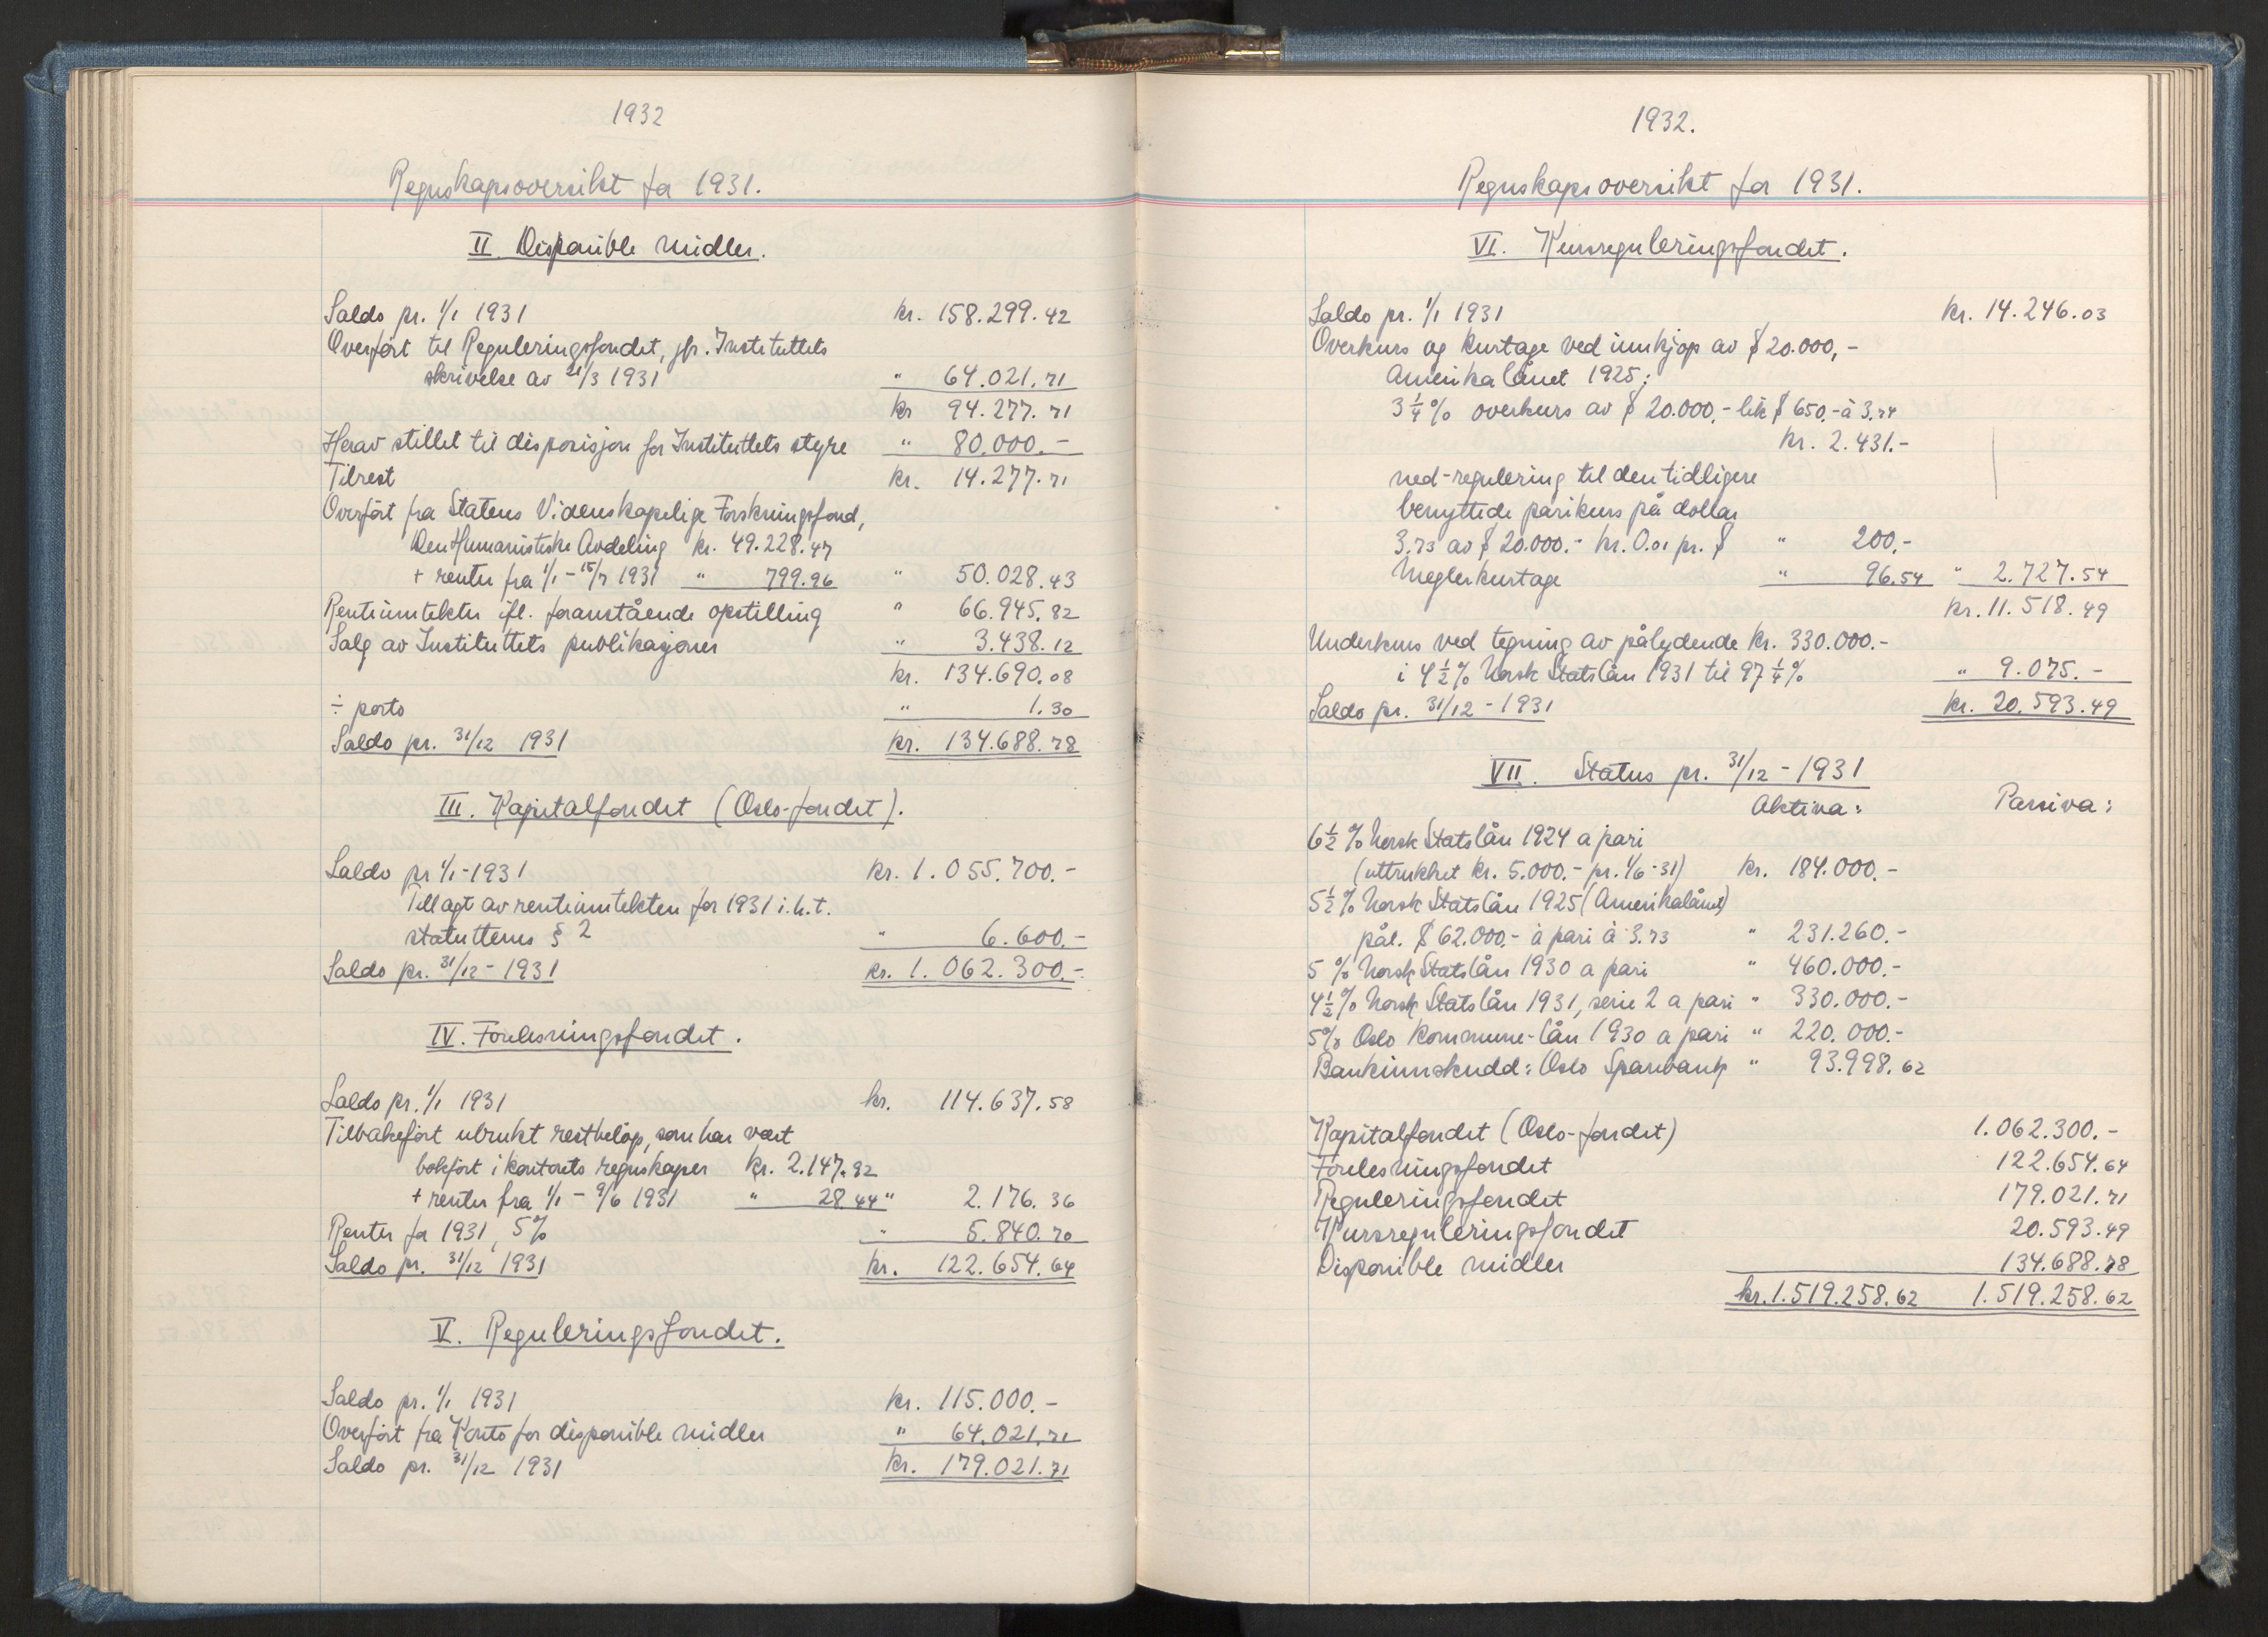 1932
Regnskapsoversikt for 1931.
II. Disponible midler.
Saldo pr. 1/1 1931 kr. 158.299.42
Overført til Reguleringsfondet, jfr. Instituttets
skrivelse av 21/3 1931 " 64.021.71
kr 94.277.71
Herav stillet til disposisjon for Instituttets styre " 80.000.-
Tilrest kr. 14.277.71
Overført fra Statens Videnskapelige Forskningsfond,
Den Humanistiske Avdeling kr. 49.228.47
+ renter fra 1/1 - 15/7 1931 " 799.96 " 50.028.43
Renteinntekter ifl. foranstående opstilling " 66.945.82
Salg av Instituttets publikasjoner " 3.438.12
kr. 134.690.08
÷ porto " 1.30
Saldo pr. 31/12 1931 kr. 134.688.78
III. Kapitalfondet (Oslo-fondet).
Saldo pr 1/1-1931 kr. 1.055.700.-
Tillagt av renteinntekten for 1931 i.h.t.
statuttenes § 2 " 6.600.-
Saldo pr. 31/12 - 1931 kr. 1.062.300.-
IV. Forelesningsfondet.
Saldo pr. 1/1 1931 kr. 114.637.58
Tilbakeført ubrukt restbeløp, som har vært
bokført i kontorets regnskaper kr. 2.147.92
+ renter fra 1/1 - 9/6 1931 " 28.44 " 2.176.36
Renter for 1931, 5% " 5.840.70
Saldo pr. 31/12 1931 kr. 122.654.64
V. Reguleringsfondet.
Saldo pr. 1/1 1931 kr. 115.000.-
Overført fra Konto for disponible midler " 64.021.71
Saldo pr. 31/12 1931 kr. 179.021.71
1932.
Regnskapsoversikt for 1931.
VI. Kursreguleringsfondet.
Saldo pr. 1/1 1931 kr. 14.246.03
Overkurs og kurtage ved innkjøp av $ 20.000,-
Amerikalånet 1925:
3 1/4 % overkurs av $ 20.000.- lik $ 650.- à 3.74
kr. 2.431.-
ned-regulering til den tidligere
benyttede parikurs på dollar
3.73 av $ 20.000.- kr. 0.01 pr. $ " 200.-
Meglerkurtage " 96.54 " 2.727.54
kr. 11.518.49
Underkurs ved tegning av pålydende kr. 330.000.-
i 4 1/2 % Norsk Statslån 1931 til 97 1/4 % " 9.075.-
Saldo pr. 31/12 - 1931 kr. 20.593.49
VII. Status pr. 31/12 - 1931
Aktiva: Passiva:
6 1/2 % Norsk Statslån 1924 a pari
(uttrukket kr. 5.000.- pr. 1/6-31) kr. 184.000.-
5 1/2 % Norsk Statslån 1925 (Amerikalånet)
pål. $ 62.000.- à pari à 3.73 " 231.260.-
5 % Norsk Statslån 1930 a pari " 460.000.-
4 1/2 % Norsk Statslån 1931, serie 2 a pari " 330.000.-
5% Oslo Kommune-lån 1930 a pari " 220.000.-
Bankinnskudd: Oslo Sparebank " 93.998.62
Kapitalfondet (Oslo-fondet) 1.062.300.-
Forelesningsfondet 122.654.64
Reguleringsfondet 179.021.71
Kursreguleringsfondet 20.593.49
Disponible midler 134.688.78
kr. 1.519.258.62 1.519.258.62